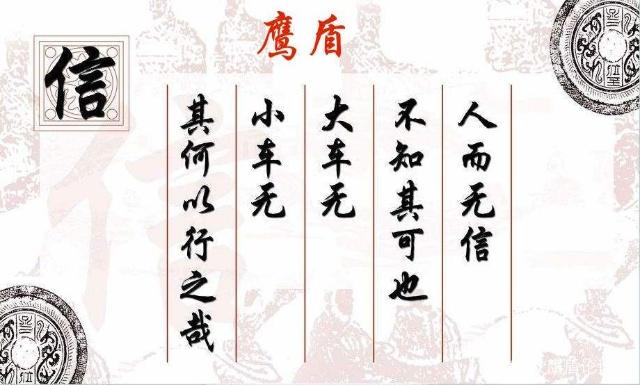 鹰盾
信
人而无信
不知其可也
大车无
小车无
其何以行之哉